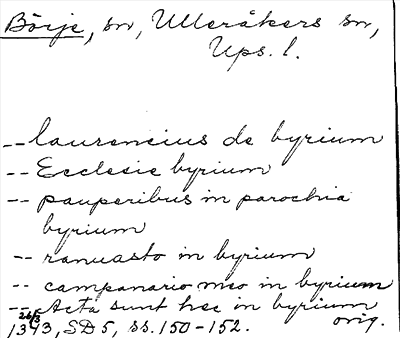 Börje, sn, Ulleråkers sn,
Ups. l.
-- laurencius de byrium
-- Ecclesie byrium
-- pauperibus in parochia
byrium
-- ranuasto in byrium
-- campanario meo in byrium
-- Acta sunt hec in byrium
26/3 1343, SD5, ss. 150-152. orig.